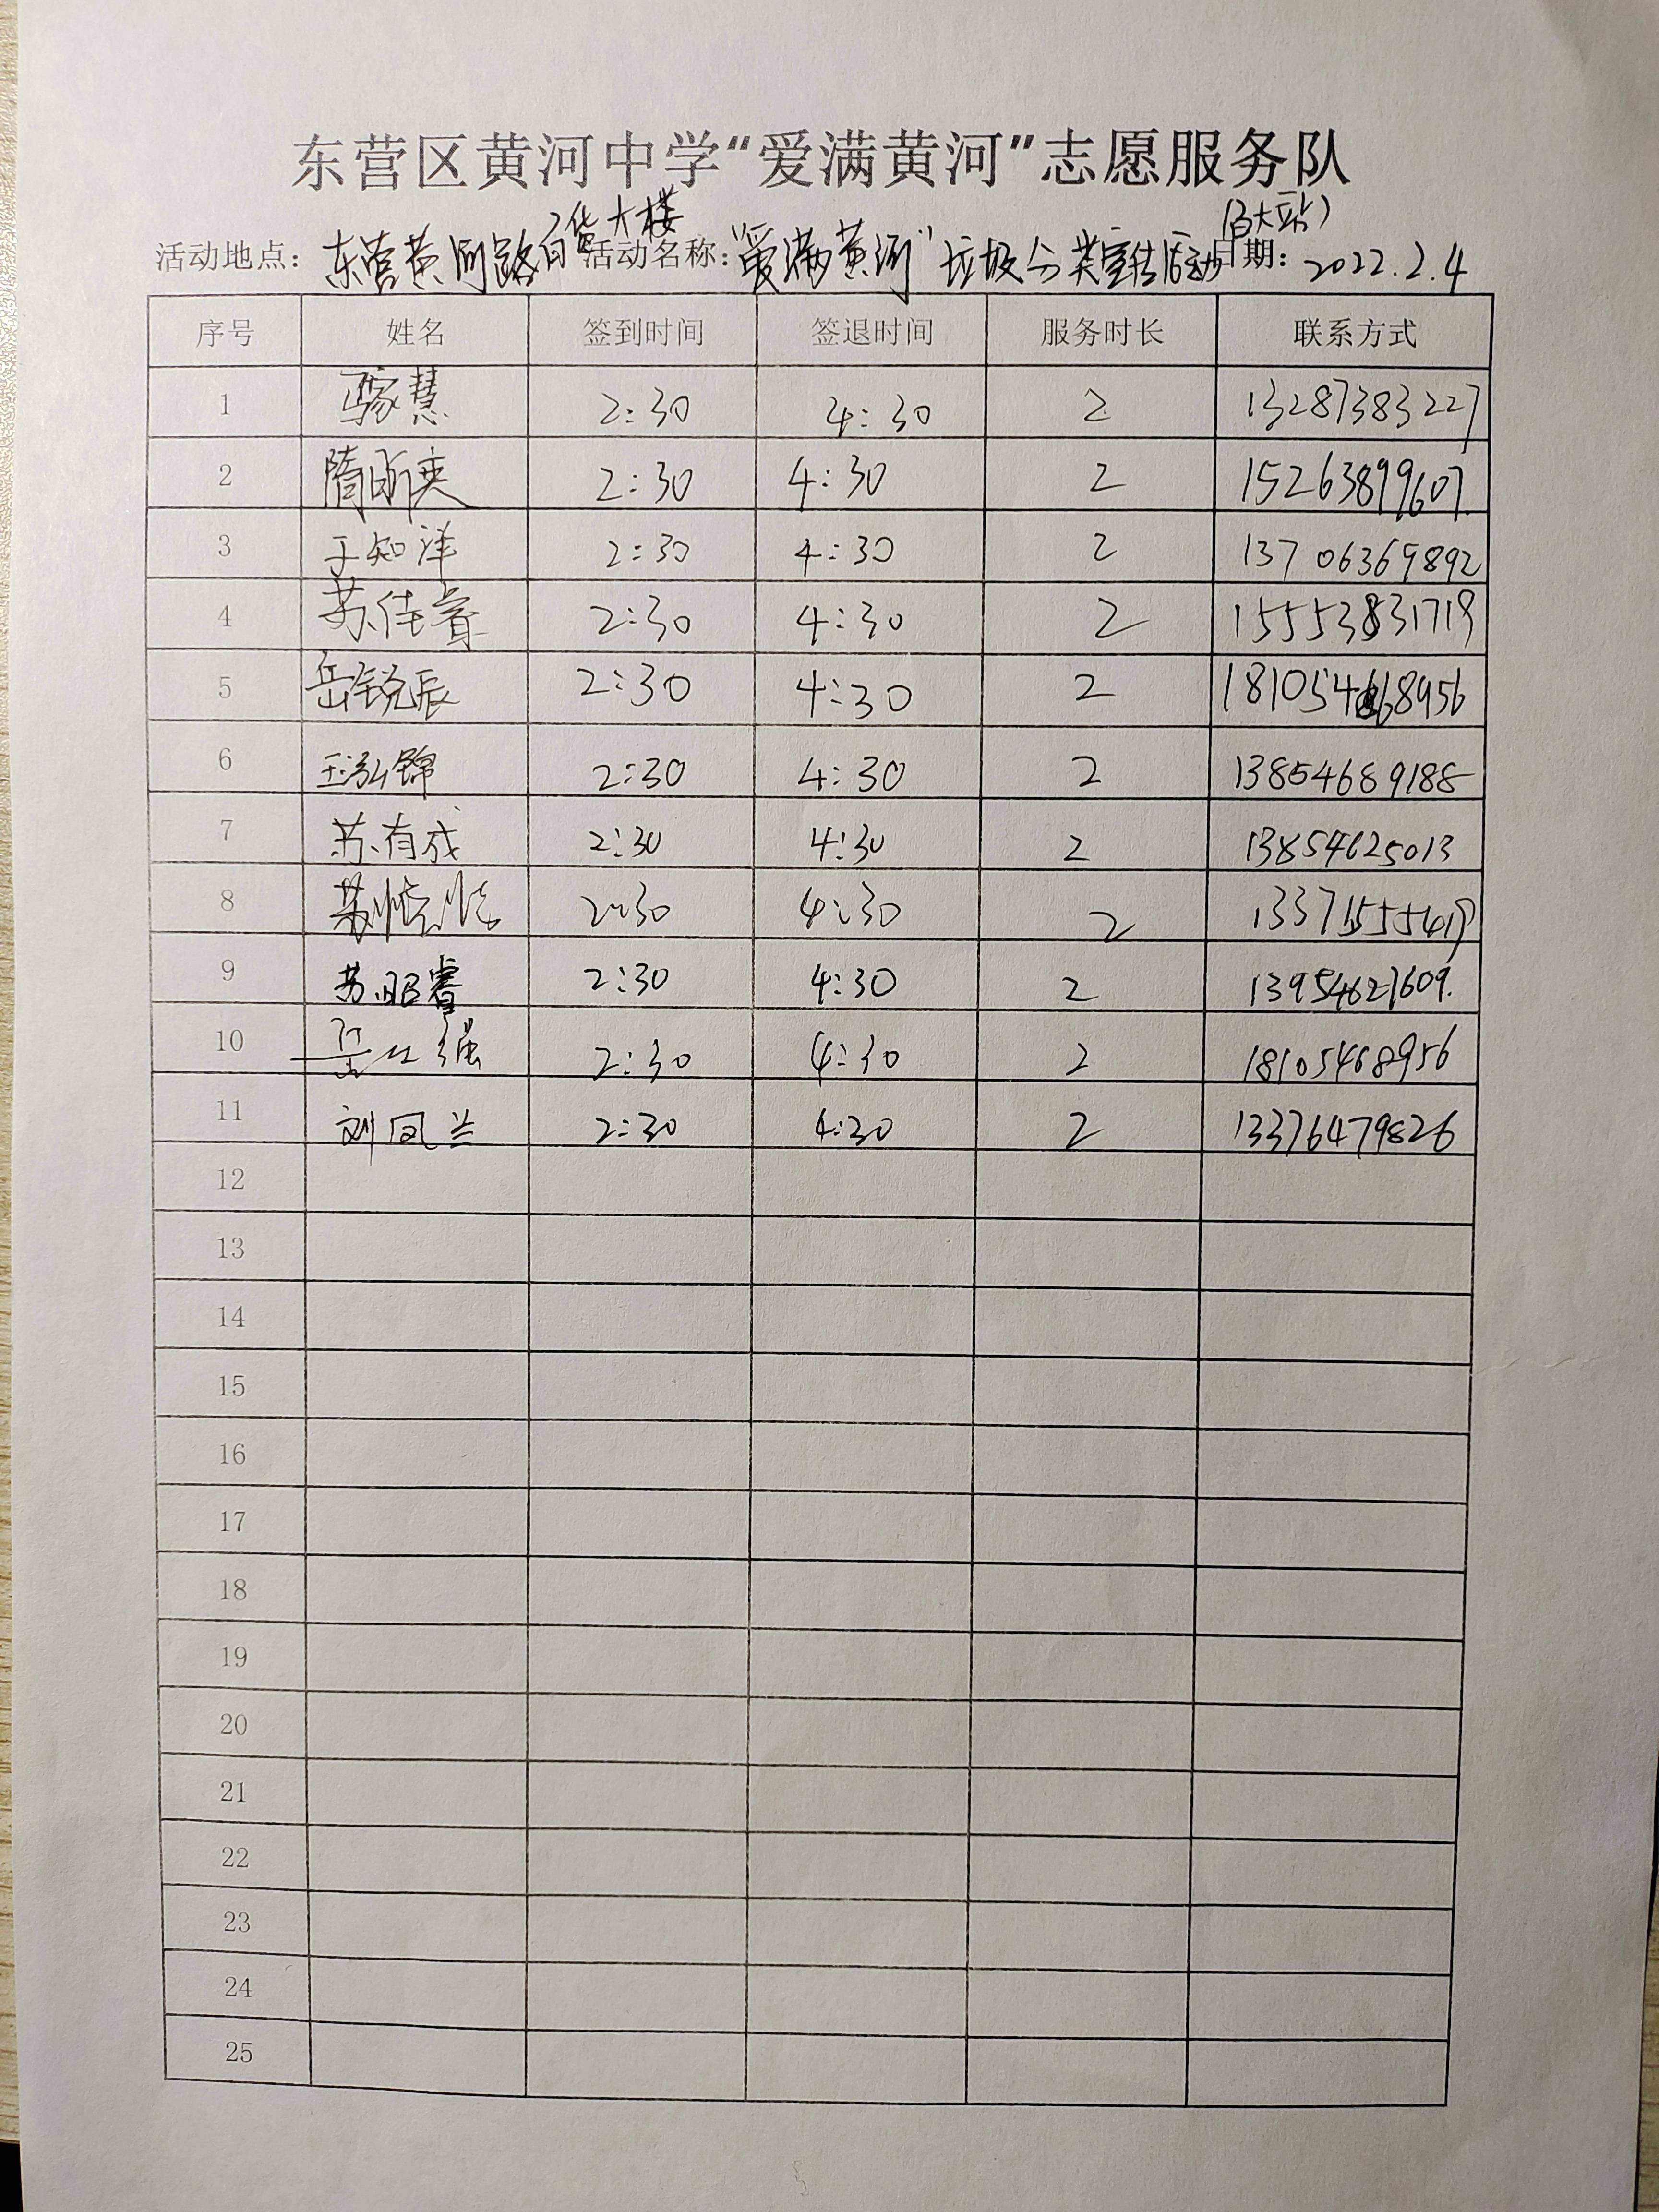 东营区黄河中学“爱满黄河”志愿服务队
活动地点：东营黄河路百货大楼 活动名称：“爱满黄河”垃圾分类宣传活动（百大站） 日期：2022.2.4
序号 姓名 签到时间 签退时间 服务时长 联系方式
1 慧 2:30 4:30 2 13287383227
2 隋昕奕 2:30 4:30 2 15263899607
3 于知洋 2:30 4:30 2 13706369892
4 苏佳睿 2:30 4:30 2 15553831719
5 岳锐辰 2:30 4:30 2 18105468956
6 王泓锦 2:30 4:30 2 13854689188
7 苏有成 2:30 4:30 2 13854625013
8 苏 2:30 4:30 2
9 苏昭睿 2:30 4:30 2 13954627609
10 岳 强 2:30 4:30 2 18105468956
11 刘凤兰 2:30 4:30 2 13376479826
12
13
14
15
16
17
18
19
20
21
22
23
24
25